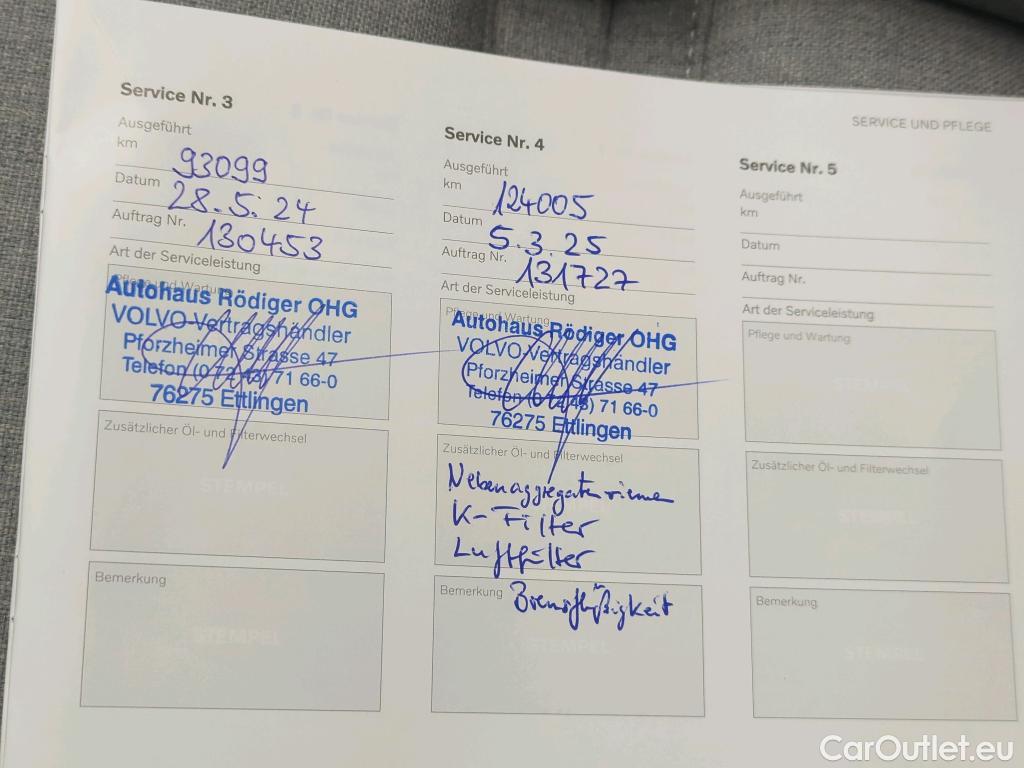 SERVICE UND PFLEGE
Service Nr. 3
Ausgeführt
km 93099
Datum 28.5.24
Auftrag Nr. 130453
Art der Serviceleistung
Pflege und Wartung
Autohaus Rödiger OHG
VOLVO-Vertragshändler
Pforzheimer Strasse 47
Telefon (0 72 43) 71 66-0
76275 Ettlingen
Zusätzlicher Öl- und Filterwechsel
STEMPEL
Bemerkung
STEMPEL
Service Nr. 4
Ausgeführt
km 124005
Datum 5.3.25
Auftrag Nr. 131727
Art der Serviceleistung
Pflege und Wartung
Autohaus Rödiger OHG
VOLVO-Vertragshändler
Pforzheimer Strasse 47
Telefon (0 72 43) 71 66-0
76275 Ettlingen
Zusätzlicher Öl- und Filterwechsel
Nebenaggregatenrieme
K-Filter
Luftfilter
Bemerkung Bremsflüßigkeit
STEMPEL
Service Nr. 5
Ausgeführt
km
Datum
Auftrag Nr.
Art der Serviceleistung
Pflege und Wartung
STEMPEL
Zusätzlicher Öl- und Filterwechsel
STEMPEL
Bemerkung
STEMPEL
CarOutlet.eu